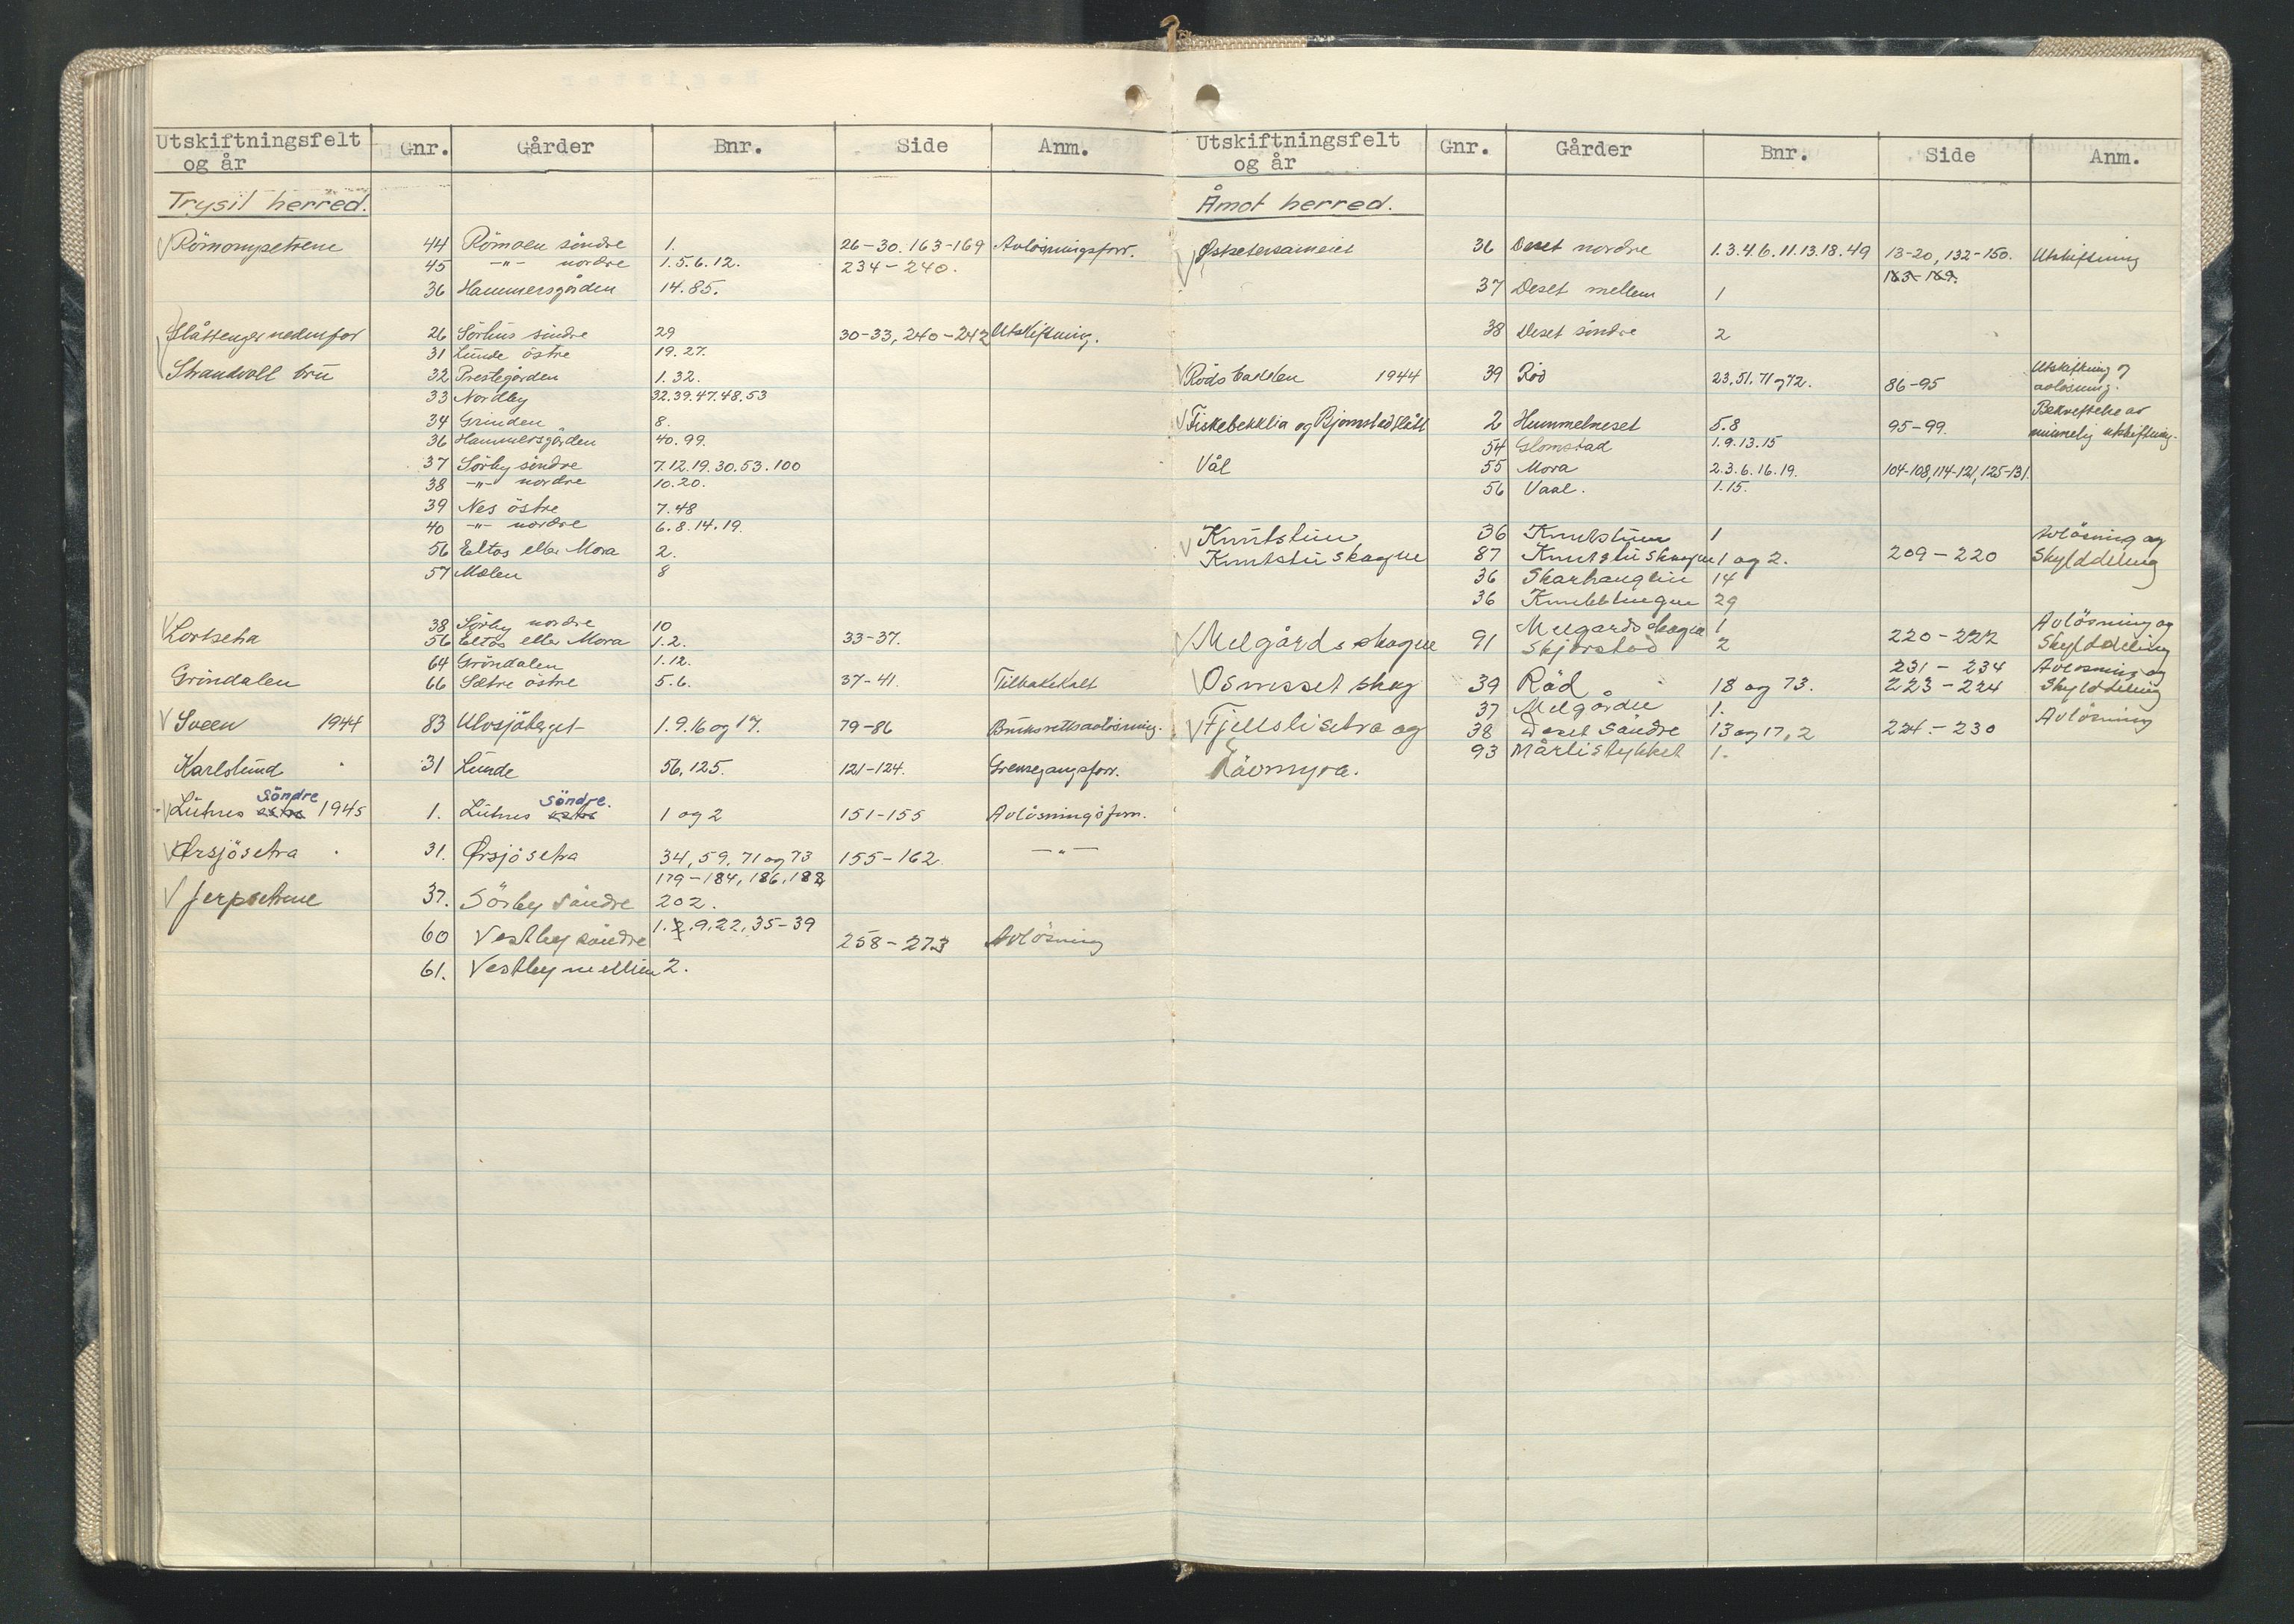 Utskiftningsfelt og år Gnr. Gårder Bnr. Side Anm.
Trysil herred.
√ Römomysetrene 44 Römoen söndre 1. 26-30. 163-169 Avlösningsforr.
45 -"- nordre 1.5.6.12. 234-240.
36 Hammersgården 14.85.
Slåttenger nedenfor 26 Sörhus söndre 29 30-33, 240-242 Utskiftning.
31 Lunde östre 19.27.
Strandvoll bru 32 Prestegården 1.32.
33 Nordby 32.39.47.48.53
34 Grinden 8.
36 Hammersgården 40.99.
37 Sörby söndre 7.12.19.30.53.100
38 -"- nordre 10.20.
39 Nes östre 7.48
40 -"- nordre 6.8.14.19.
56 Eltås eller Mora 2.
57 Mælen 8
38 Sörby nordre 10
√ Lortsetra 56 Eltås eller Mora 1.2. 33-37.
64 Gröndalen 1.12.
Gröndalen 66 Sætre östre 5.6. 37-41. Tilbakekalt
√ Sveen 1944 83 Ulvsjöberget 1.9.16 og 17. 79-86 Bruksrettsavlösning.
Karlslund " 31 Lunde 56, 125. 121-124. Grensegangsforr.
söndre söndre.
√ Lutnes 1945 1. Lutnes 1 og 2 151-155 Avlösningsforr.
√ Ørsjösetra " 31. Ørsjösetra 34, 59, 71 og 73 155-162 -"-
179-184, 186, 188
√ Jerpsetrene 37. Sörby söndre 202.
60 Vestby söndre 1.2.9.22, 35-39 258-273 Avlösning
61. Vestby mellem 2.
Utskiftningsfelt og år Gnr. Gårder Bnr. Side Anm.
Åmot herred.
√ Østsetersameiet 36 Deset nordre 1.3.4.6.11.13.18.49 13-20, 132-150. Utskiftning
163-169.
37 Deset mellem 1
38 Deset söndre 2
√ Rödsbakken 1944 39 Röd 23, 51, 71 og 72. 86-95 Utskiftning og avlösning.
√ Fiskebekklia og Bjørnstadslått 2 Hummelneset 5.8 95-99. Bekreftelse av minnelig utskiftning.
54 Glomstad 1.9.13.15
Vål 55 Mora 2.3.6.16.19. 104-108, 114-121, 125-131.
56 Vaal. 1.15.
Knutstun 36 Knutstun 1 Avlösning og
√ Knutstuskogen 87 Knutstuskogen 1 og 2. 209-220 Skylddeling
36 Skarhauglien 14
36 29
Melgårdsskogen 1 Avlösning og
√ Melgårdsskogen 91 Skjørstad 2 220-222 Skylddeling
231-234 Avlösning og
√ Osneset skog 39 Röd 18 og 73. 223-224 Skylddeling
37 Melgården 1. Avlösning
√ Fjellslisetra og 38 Deset Söndre 13 og 17, 2 224-230
Rävmyra. 93 Mårlistykket 1.